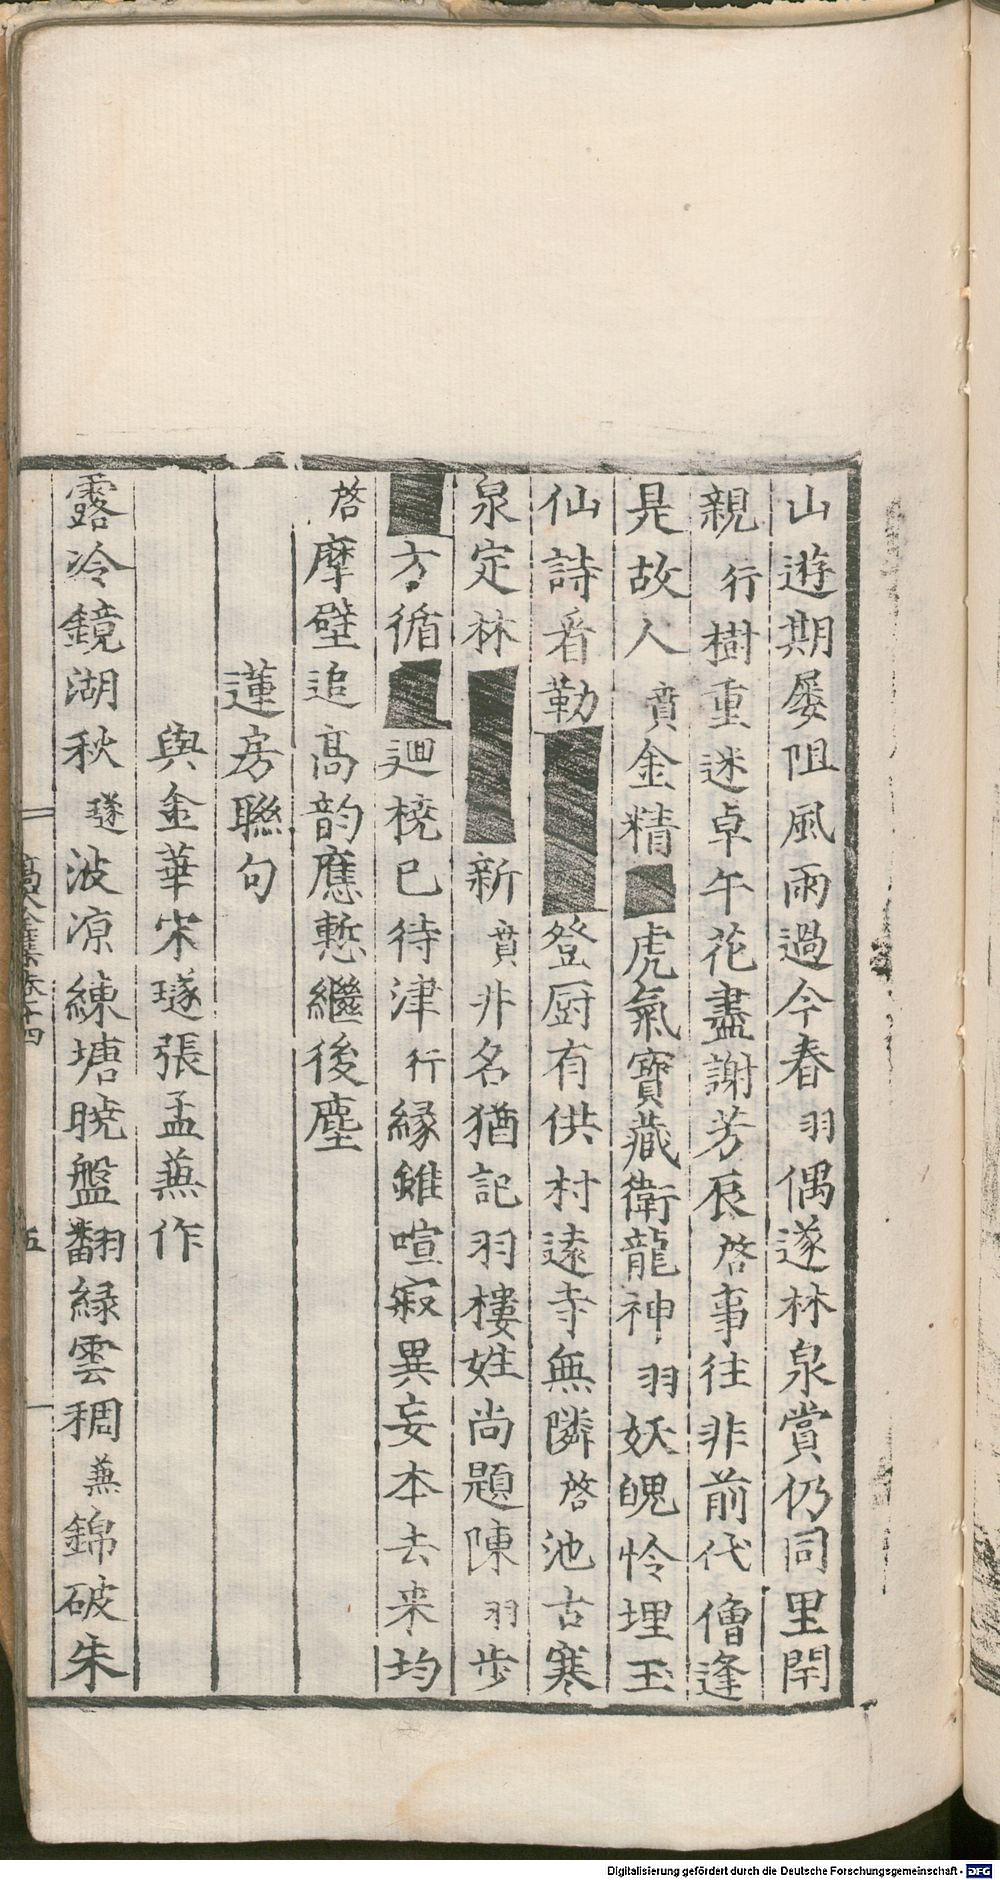 山遊期屡阻風雨過今春羽偶遂林泉賞仍同里閈
親行樹重迷卓午花盡謝芳辰啓事往非前代僧逢
是故人賁金精■虎氣寶藏衛龍神羽妖魄怜埋玉
仙詩看勒■登厨有供村遠寺無隣啓池古寒
泉定林■新賁非名猶記羽樓姓尚題陳羽步
■方循■廻橈已待津行縁雖喧寂異妄本去来均
啓摩壁追高韵應慙繼後塵
蓮房聯句
與金華宋璲張孟蒹作
露冷鏡湖秋璲波凉練塘曉盤翻緑雲稠蒹錦破朱
高全集卷十四
五
Digitalisierung gefördert durch die Deutsche Forschungsgemeinschaft - DFG